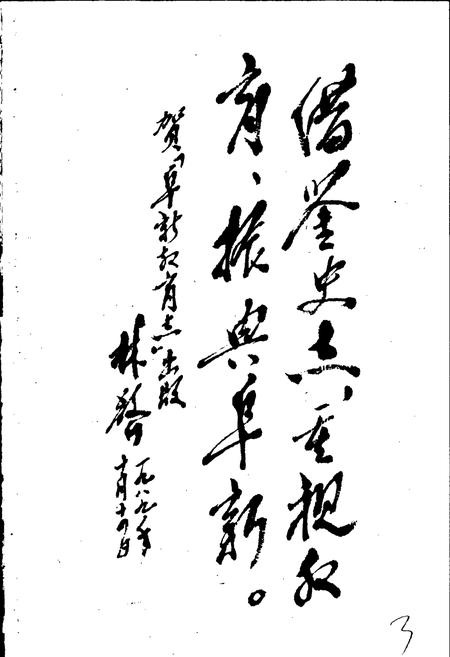 借鉴史志、重视教
育、振兴阜新。
贺《阜新教育志》出版
林
一九八九年
十月十六日
3